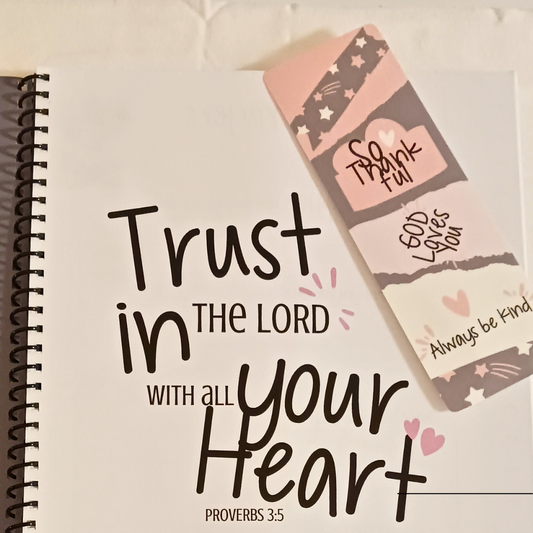 Trust
in THE LORD
WITH all your
Heart
PROVERBS 3:5
So
Thank
ful
GOD
Loves
You
Always be Kind